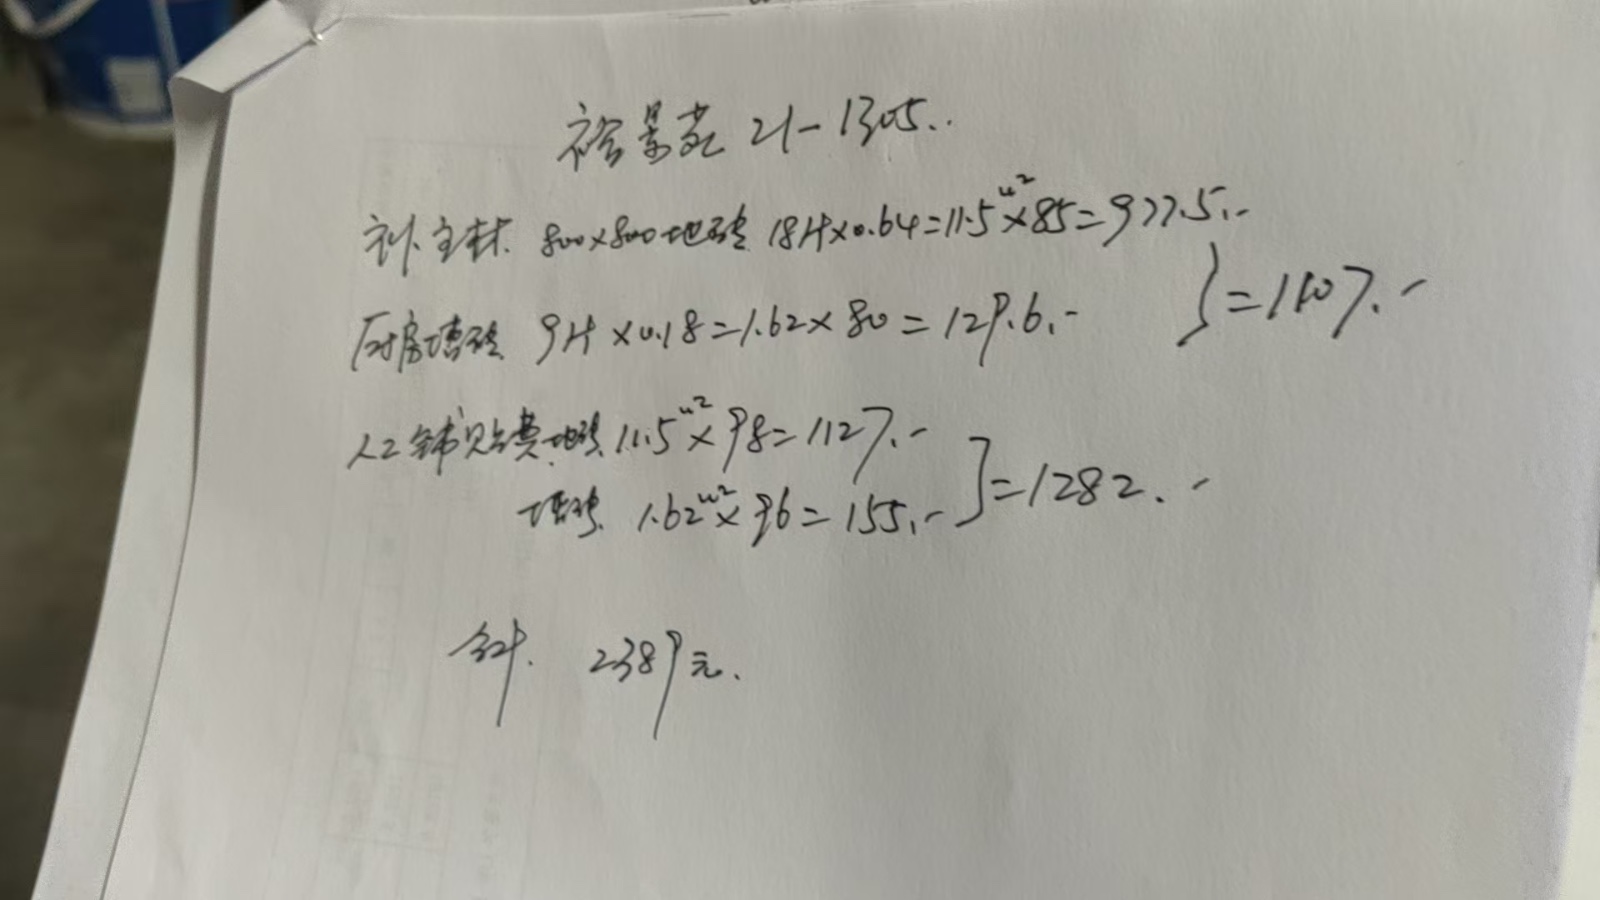 裕景苑 21-1305..
补主材. 800×800地砖 18片×0.64=11.5m²×85=977.5.-
}=1107.-
厨房墙砖 9片×0.18=1.62×80=129.6.-
人工铺贴费 地砖 11.5m²×98=1127.-
墙砖. 1.62m²×96=155.- ]=1282.-
合计. 2389元.